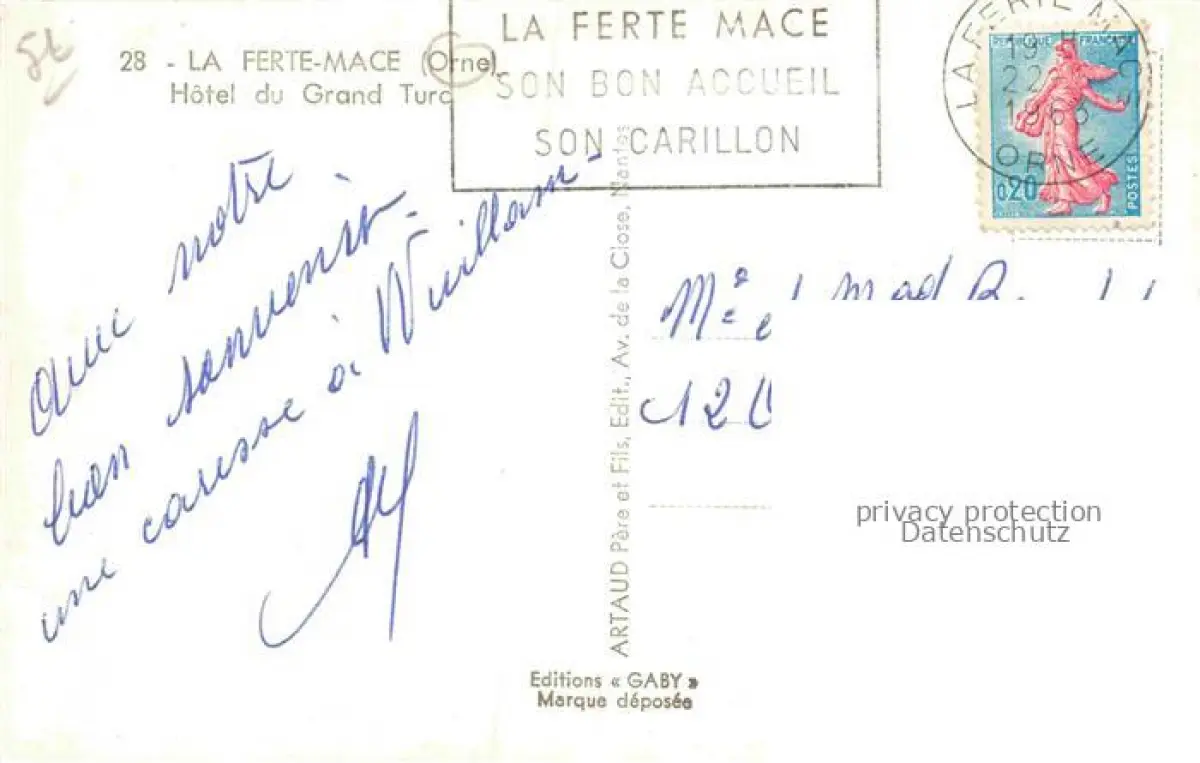 28 - LA FERTE-MACE (Orne)
Hôtel du Grand Turc
LA FERTE MACE
SON BON ACCUEIL
SON CARILLON
LA FERTE MACE
19 H
22
1963
ORNE
REPUBLIQUE FRANÇAISE
0,20
POSTES
Avec notre
bon souvenir.
une caresse à
ARTAUD Père et Fils, Edit., Av. de la Close, Nantes
120
privacy protection
Datenschutz
Editions « GABY »
Marque déposée